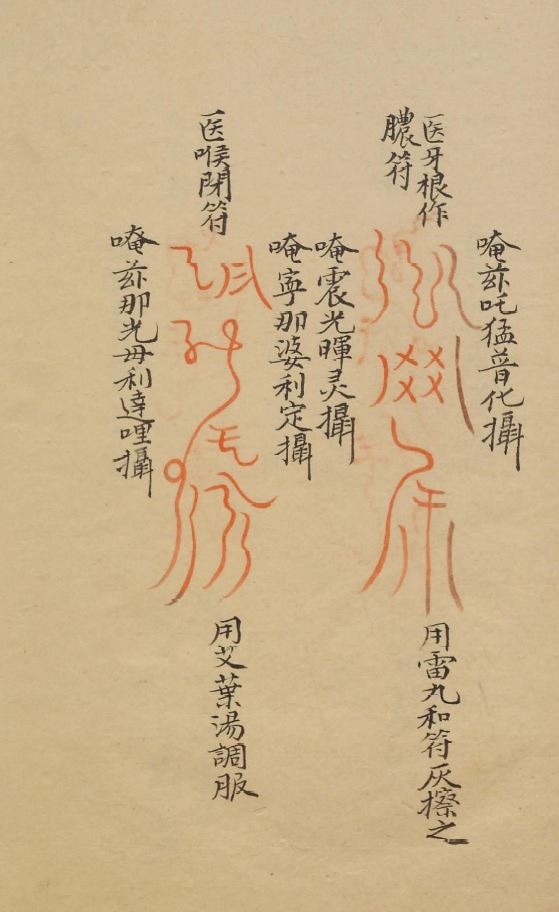 医牙根作
膿符
唵茲吒猛普化攝
唵震光暉灵攝
用雷丸和符灰擦之
医喉閉符
唵寧那婆利定攝
唵茲那光毋利達哩攝
用艾葉湯調服